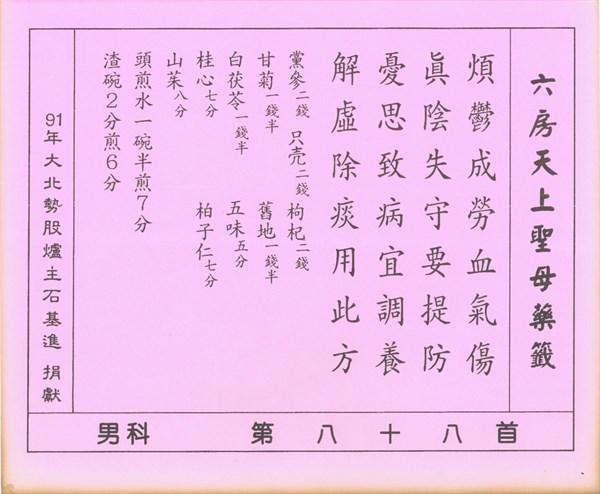 六房天上聖母藥籤
煩鬱成勞血氣傷
眞陰失守要提防
憂思致病宜調養
解虛除痰用此方
黨參二錢 只壳二錢 枸杞二錢
甘菊一錢半 舊地一錢半
白茯苓一錢半 五味五分
桂心七分 柏子仁七分
山茱八分
頭煎水一碗半煎7分
渣碗2分煎6分
91年大北勢股爐主石基進 捐獻
首八十八第 男科